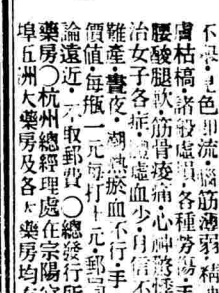 色即流腦筋薄弱
膚枯槁·諸般虛損·各種勞傷·手
腰酸腿軟·筋骨痠痛·心神驚悸
治女子各症·體虛血少·月信不
難產·晝夜·潮熱瘀血不行·手
價值·每瓶一元每打十元郵
論遠近·不取郵費〇總發行所
藥房〇杭州總經理處在宗陽
埠五洲大藥房及各大藥房均